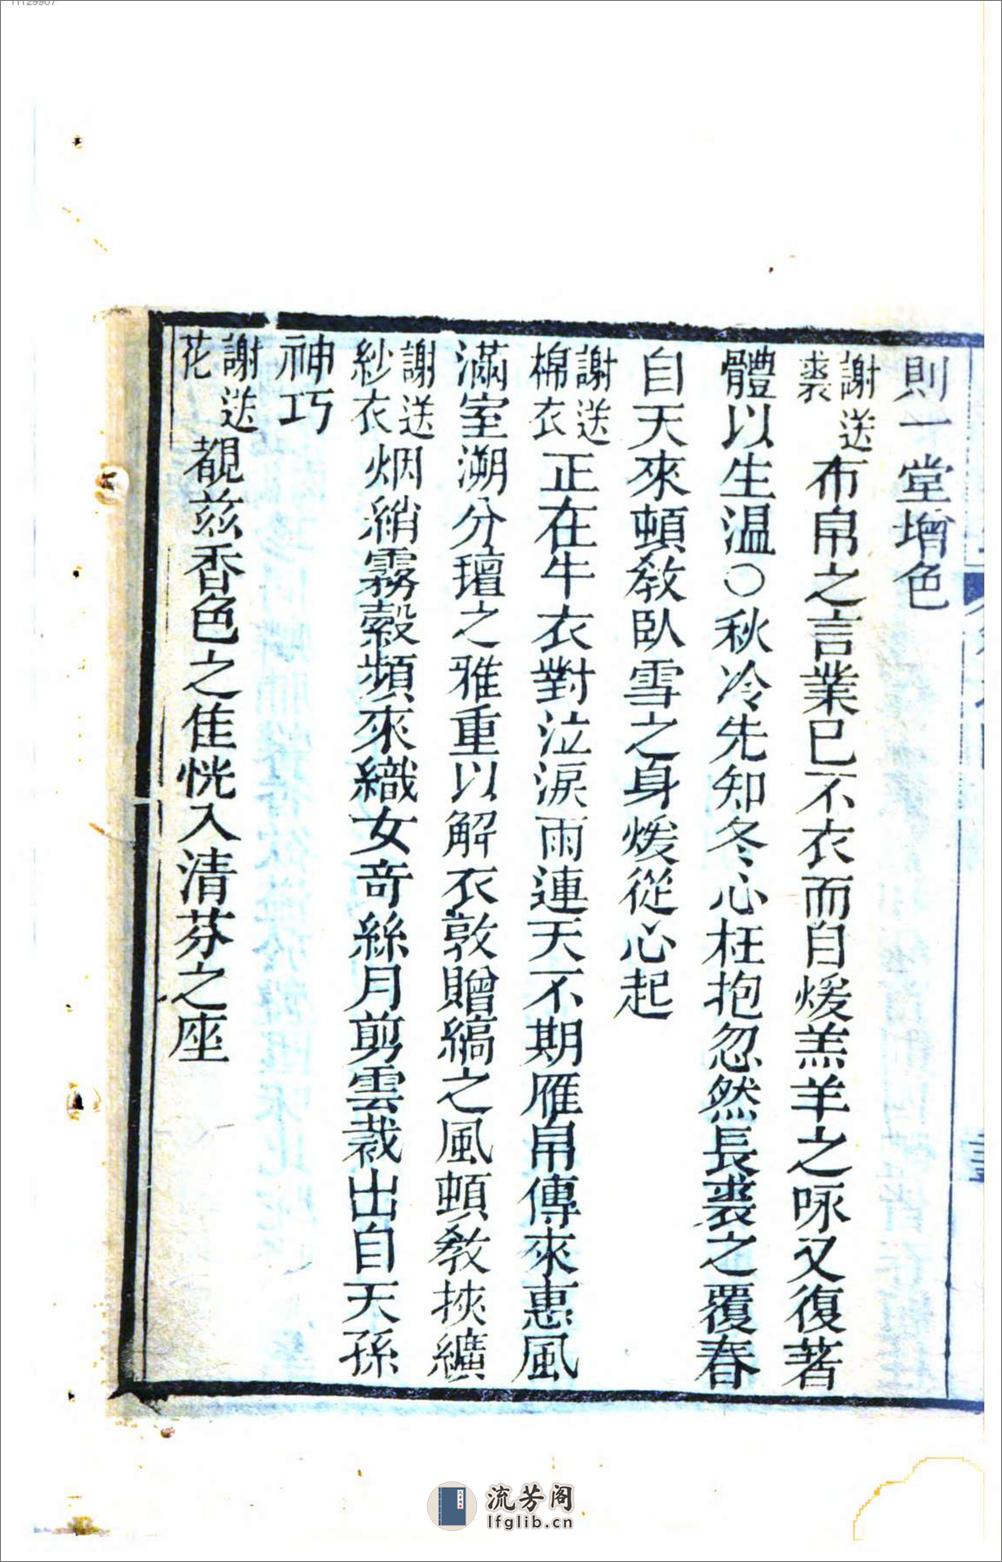 則一堂增色
謝送裘 布帛之言業已不衣而自煖羔羊之咏又復著
體以生温○秋冷先知冬心枉抱忽然長裘之覆春
自天來頓教臥雪之身煖從心起
謝送棉衣 正在牛衣對泣淚雨連天不期雁帛傳來惠風
滿室溯分璮之雅重以解衣敦贈縞之風頓教挾纊
謝送紗衣 烟綃霧縠頻來織女奇絲月剪雲裁出自天孫
神巧
謝送花 覩兹香色之佳恍入清芬之座
流芳阁
lfglib.cn